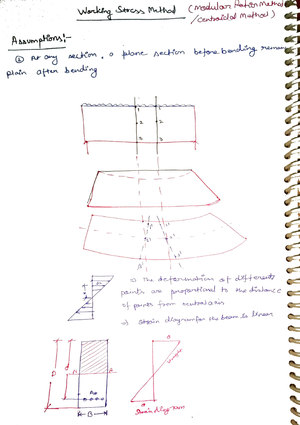 Working Stress Method (Modular Ratio Method
/centroidal Method)
Assumptions:-
At any section, a plane section before bending remains
plain after bending
1 1
2 2
3 3
The deformation of different
points are proportional to the distance
of points from neutral axis
Strain diagram for the beam is linear
D
d
Ast
B
strain diagram